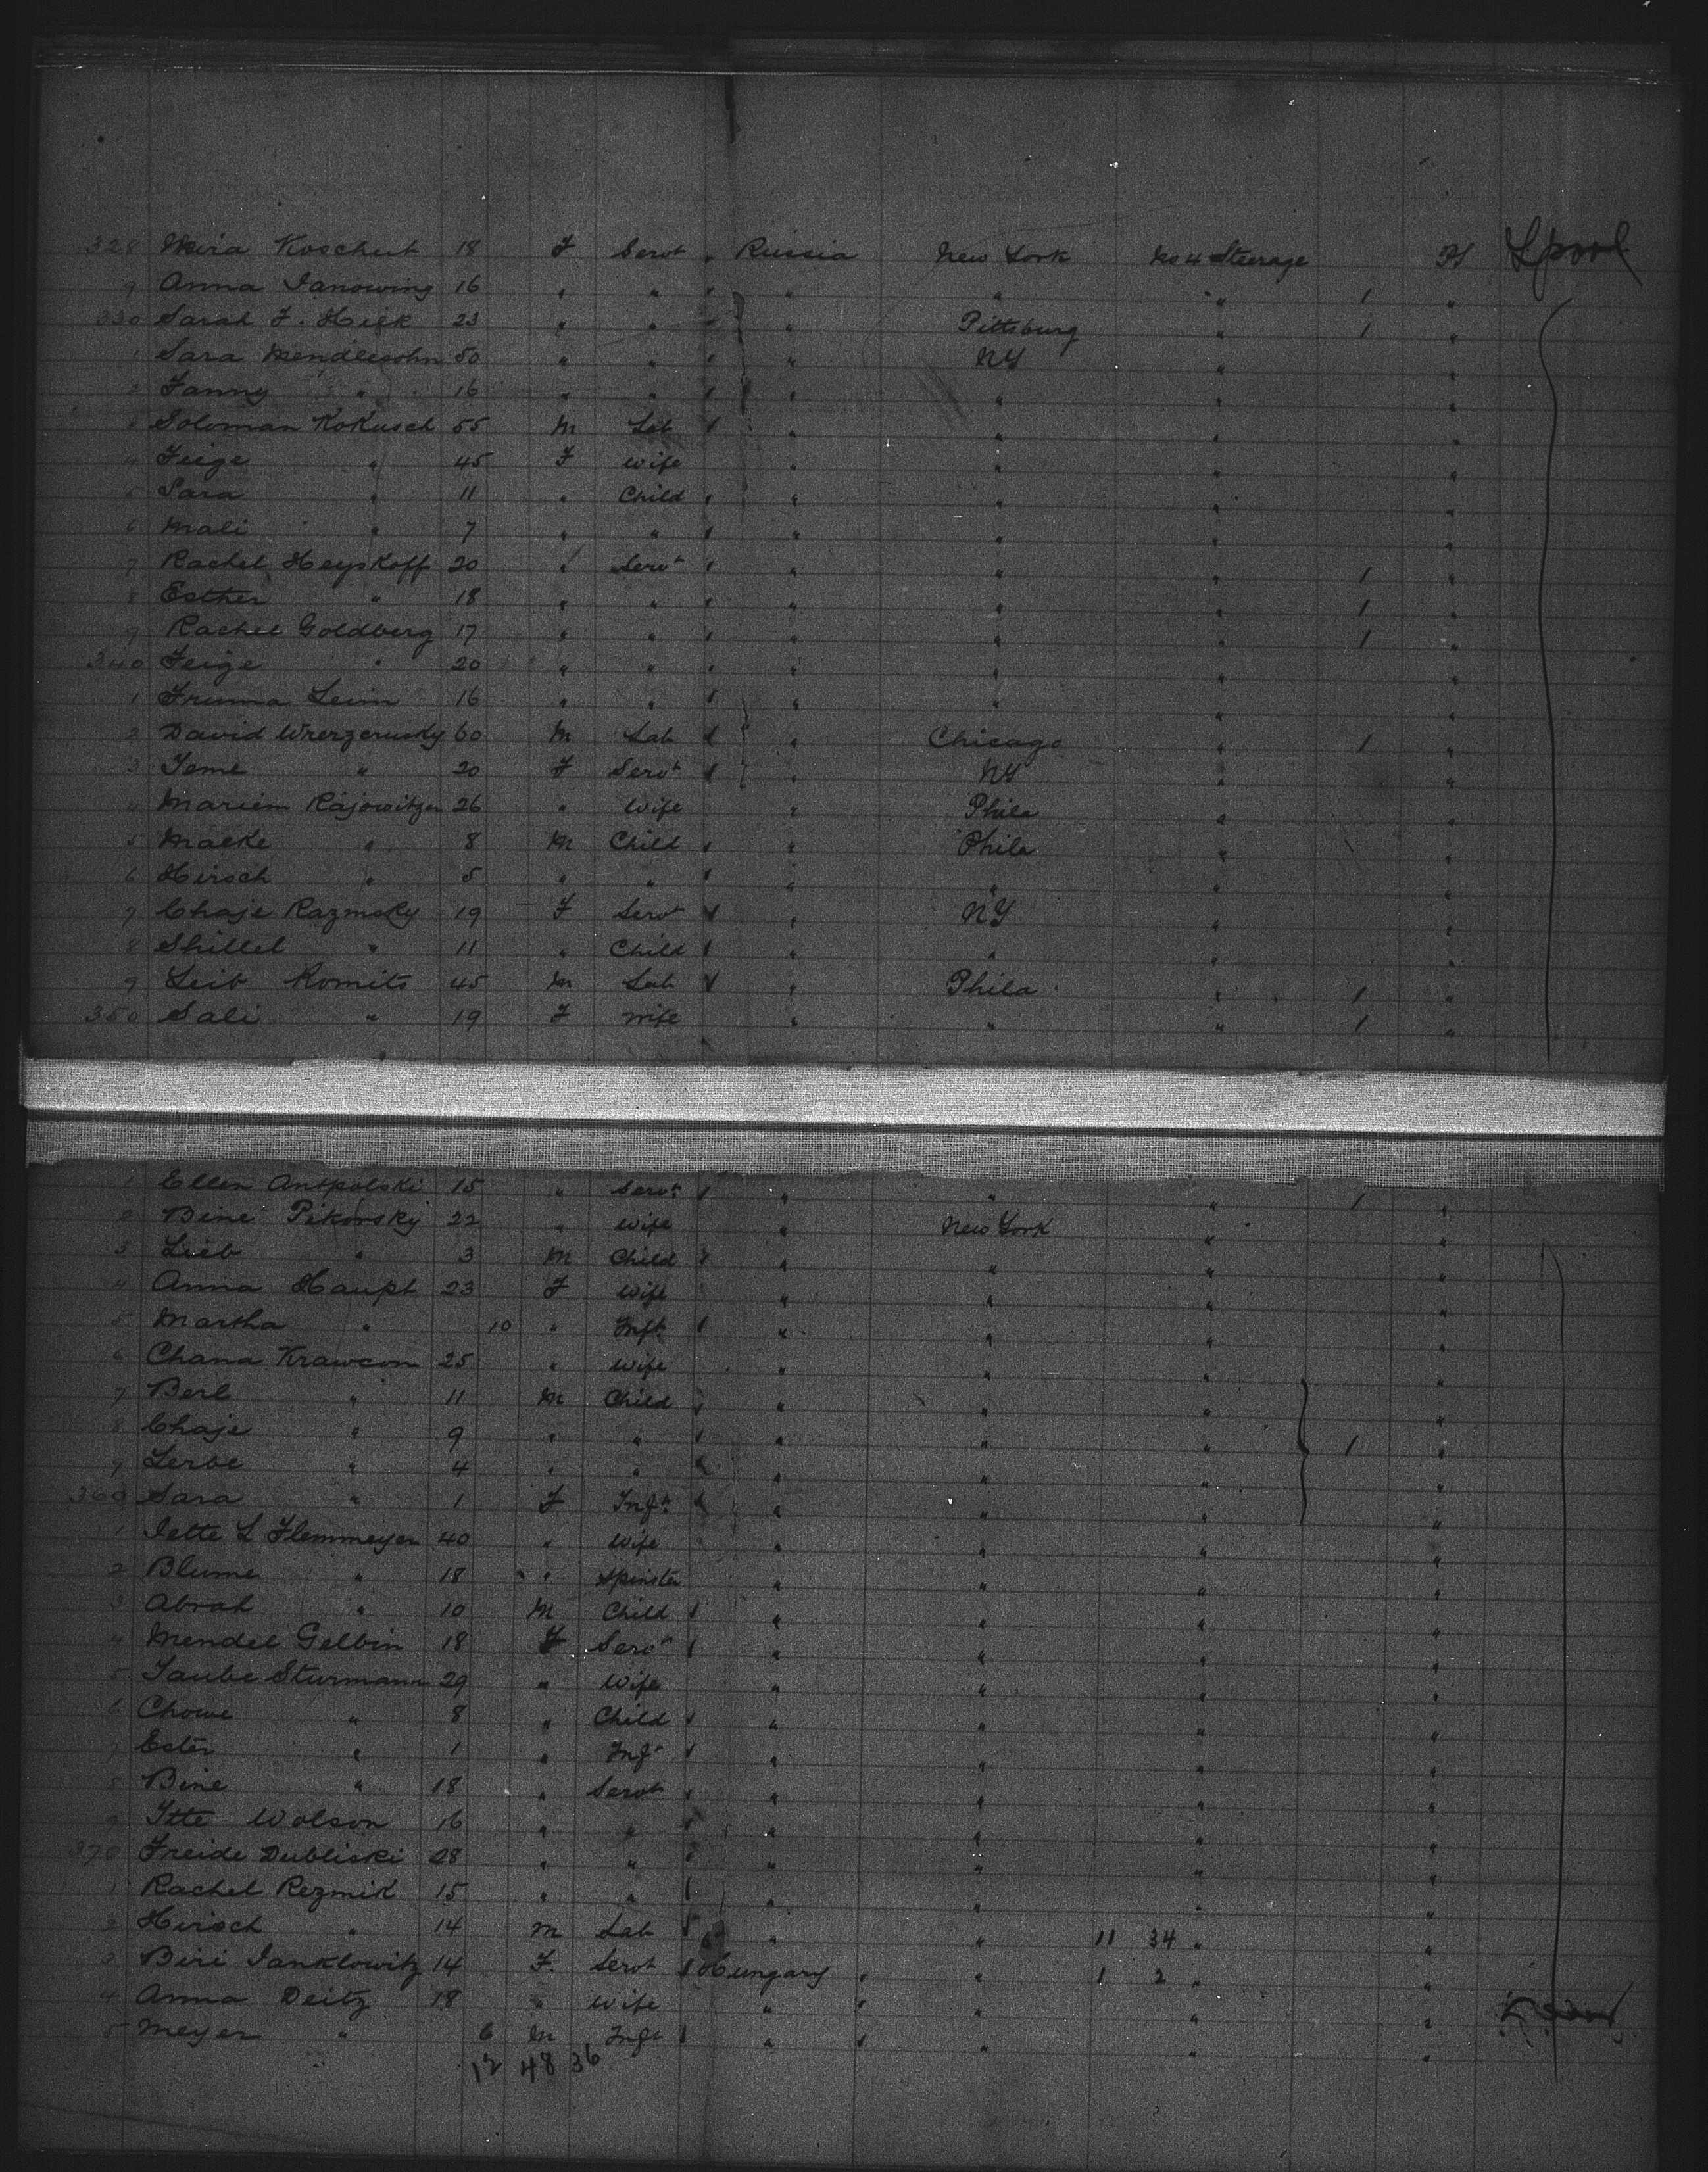 328 Meira Koschert 18 F Servt " Russia New York No 4 Steerage PS Lpool
9 Anna Janowing 16 " " " " " " 1 "
330 Sarah F. Hick 23 " " " " Pittsburg " 1 "
1 Sara Mendlesohn 50 " " " " NY " "
2 Fanny " 16 " " " " " " "
3 Soloman Kokusch 55 M Lab " " " "
4 Feige " 45 F wife " " " "
5 Sara " 11 " Child " " " " "
6 Mali " 7 " " " " " " "
7 Rachel Heyskoff 20 " Servt " " " " 1 "
8 Esther " 18 " " " " " " 1 "
9 Rachel Goldberg 17 " " " " " " 1 "
340 Feige " 20 " " " " " " "
1 Fruma Leim 16 " " " " " "
2 David 60 M Lab " Chicago " 1 "
3 Teme " 20 F Servt " NY " "
4 Mariem Rajowitzer 26 " Wife " Phila " "
5 Macke " 8 M Child " Phila " "
6 Hirsch " 5 " " " " " "
7 Chaje Razmsky 19 F Servt " NY " "
8 Shillel " 11 " Child " " " "
9 Leib Romits 45 M Lab " Phila " 1 "
350 Sali " 19 F Wife " " " 1 "
1 Ellen Antpolski 15 " Servt " " " 1 "
2 Bine Pikorsky 22 " Wife " New York " "
3 Lieb " 3 M Child " " " "
4 Anna Haupt 23 F Wife " " " "
5 Martha " 10 " Inft " " " "
6 Chana Krawcom 25 " wife " " " "
7 Berl " 11 M Child " " " "
8 Chaje " 9 " " " " " 1 "
9 Lerbe " 4 " " " " "
360 Sara " 1 F Inft " " " "
1 Jette L Flemmeyer 40 " Wife " " "
2 Blume " 18 " Spinster " " " "
3 Abrah " 10 M Child " " " "
4 Mendel Gelbin 18 F Servt " " " "
5 Taube Sturmann 29 " Wife " " " "
6 Chowe " 8 " Child " " " "
7 Ester " 1 " Inft " " " "
8 Bine " 18 " Servt " " " "
9 Itte Wolson 16 " " " " " "
370 Freide Dubliski 28 " " " " " "
1 Rachel Rezmik 15 " " " " " "
2 Hirsch " 14 M Lab " " 11 34 " "
3 Biri Janklowitz 14 F. Servt Hungary " " 1 2 " "
4 Anna Deitz 18 " Wife " " " " "
5 Meyer " 6 M Inft " " " " "
12 48 36